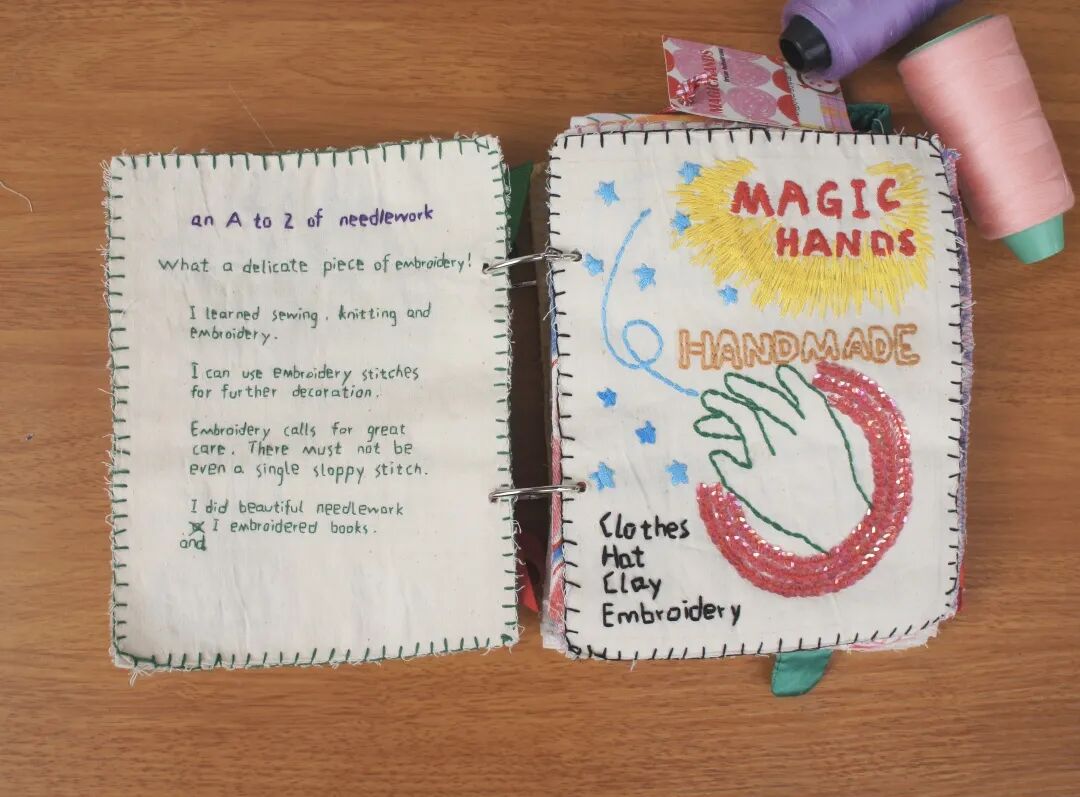 an A to Z of needlework
What a delicate piece of embroidery!
I learned sewing, knitting and
embroidery.
I can use embroidery stitches
for further decoration.
Embroidery calls for great
care. There must not be
even a single sloppy stitch.
I did beautiful needlework
I embroidered books.
and
MAGIC HANDS
MAGIC
HANDS
HANDMADE
Clothes
Hat
Clay
Embroidery